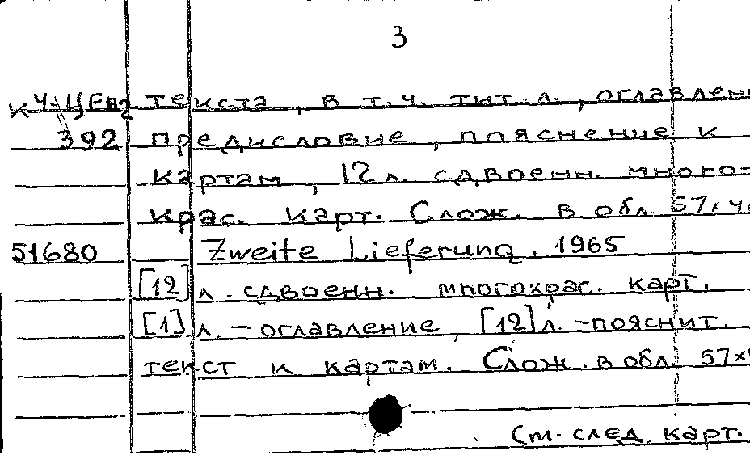 3
текста, в т.ч. тит. л., оглавлен
392 предисловие, пояснение к
картам, 12 л. сдвоенн. много-
крас. карт. Слож. в обл. 57×
51680 Zweite Lieferung. 1965
[12] л. сдвоенн. многокрас. карт.
[1] л. - оглавление, [12] л. - пояснит.
текст к картам. Слож. в обл. 57×
См. след. карт.